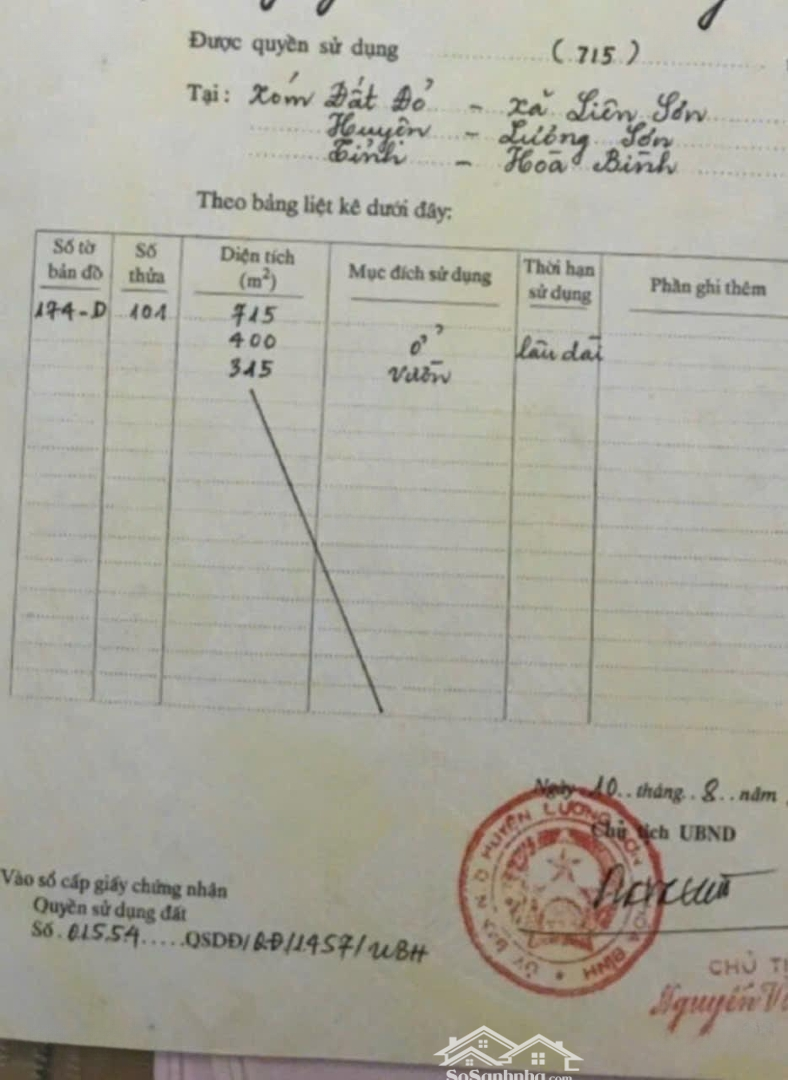 Được quyền sử dụng (715)
Tại: Xóm Đất Đỏ - xã Liên Sơn
Huyện - Lương Sơn
Tỉnh - Hoà Bình
Theo bảng liệt kê dưới đây:
Số tờ bản đồ Số thửa Diện tích (m²) Mục đích sử dụng Thời hạn sử dụng Phần ghi thêm
174-D 101 715
400 ở lâu dài
315 vườn
Ngày 10 tháng 8 năm
Chủ tịch UBND
Vào sổ cấp giấy chứng nhận
Quyền sử dụng đất
Số 01554 QSDĐ/QĐ/1457/UBH
ỦY BAN N D HUYỆN LƯƠNG SƠN HÒA BÌNH
CHỦ T
Nguyễn V
SoSanhnha.com